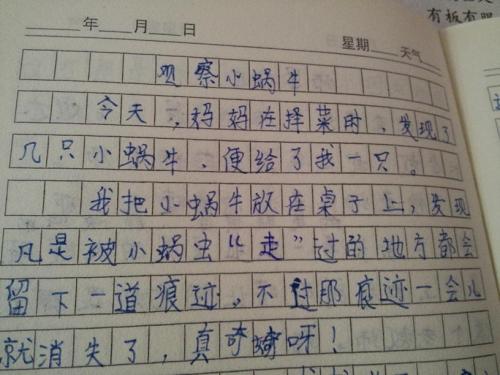 年 月 日
星期 天气
有板有眼
观察小蜗牛
今天,妈妈在择菜时,发现了
几只小蜗牛,便给了我一只。
我把小蜗牛放在桌子上,发现
凡是被小蜗虫“走”过的地方都会
留下一道痕迹。不过那痕迹一会儿
就消失了,真奇蹊呀!